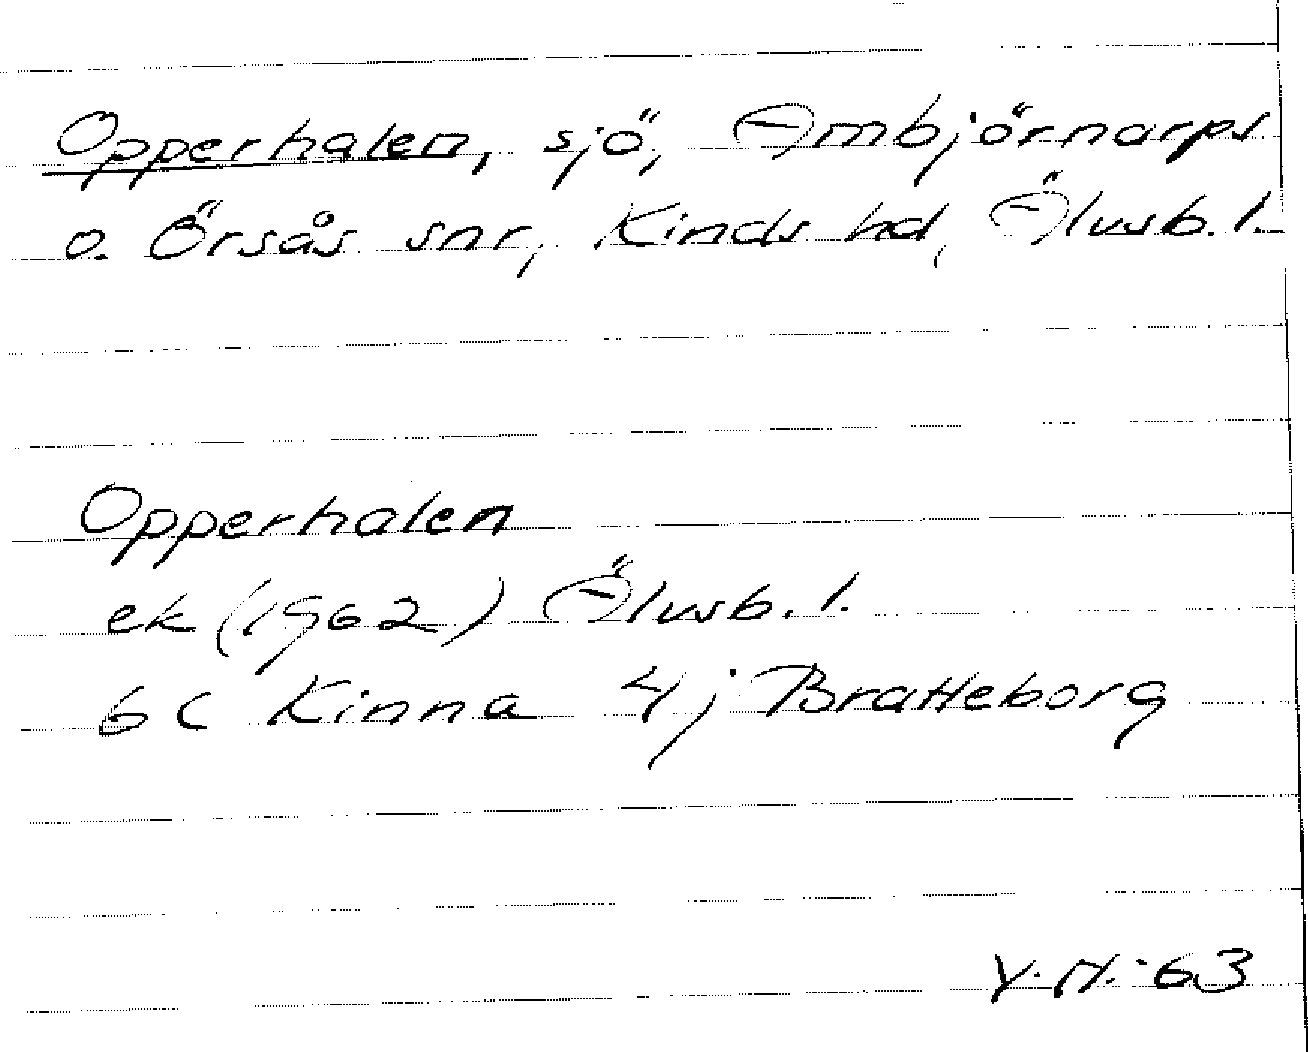 Opperhalen, sjö, Ambjörnarps
o. Örsås snr, Kinds hd, Älvsb. l.
Opperhalen
ek (1962) Älvsb. l.
6 C Kinna 4 j Bratteborg
Y. N. 63